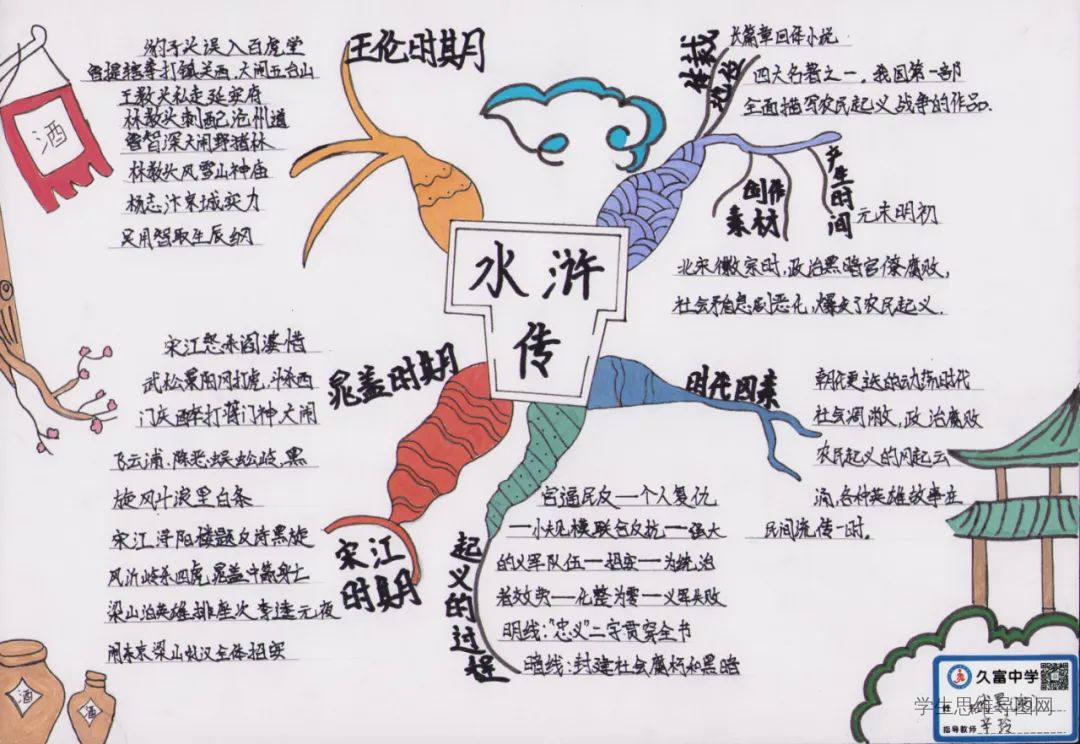 水浒
传
王伦时期
豹子头误入百虎堂
鲁提辖拳打镇关西,大闹五台山
王教头私走延安府
林教头刺配沧州道
鲁智深大闹野猪林
林教头风雪山神庙
杨志汴京城实力
吴用智取生辰纲
酒
体裁
地位
长篇章回体小说
四大名著之一,我国第一部
全面描写农民起义战争的作品.
创作
素材
产生时间
元末明初
北宋徽宗时,政治黑暗官僚腐败,
社会矛盾急剧恶化,爆发了农民起义.
晁盖时期
宋江怒杀阎婆惜
武松景阳冈打虎,斗杀西
门庆醉打蒋门神,大闹
飞云浦.除恶蜈蚣岭,黑
旋风斗浪里白条
宋江
时期
宋江浔阳楼题反诗黑旋
风沂岭杀四虎,晁盖中箭身亡
梁山泊英雄排座次 李逵元夜
闹东京梁山好汉全体招安
时代因素
朝代更迭的动荡时代
社会凋敝,政治腐败
农民起义的风起云
涌,各种英雄故事在
民间流传一时。
起义的过程
官逼民反一一个人复仇
一小规模联合反抗一一强大
的义军队伍一一招安一一为统治
者效劳一一化整为零一一义军失败
明线:"忠义"二字贯穿全书
暗线:封建社会腐朽和黑暗
酒
酒
久富中学
学生思维导图网
指导教师